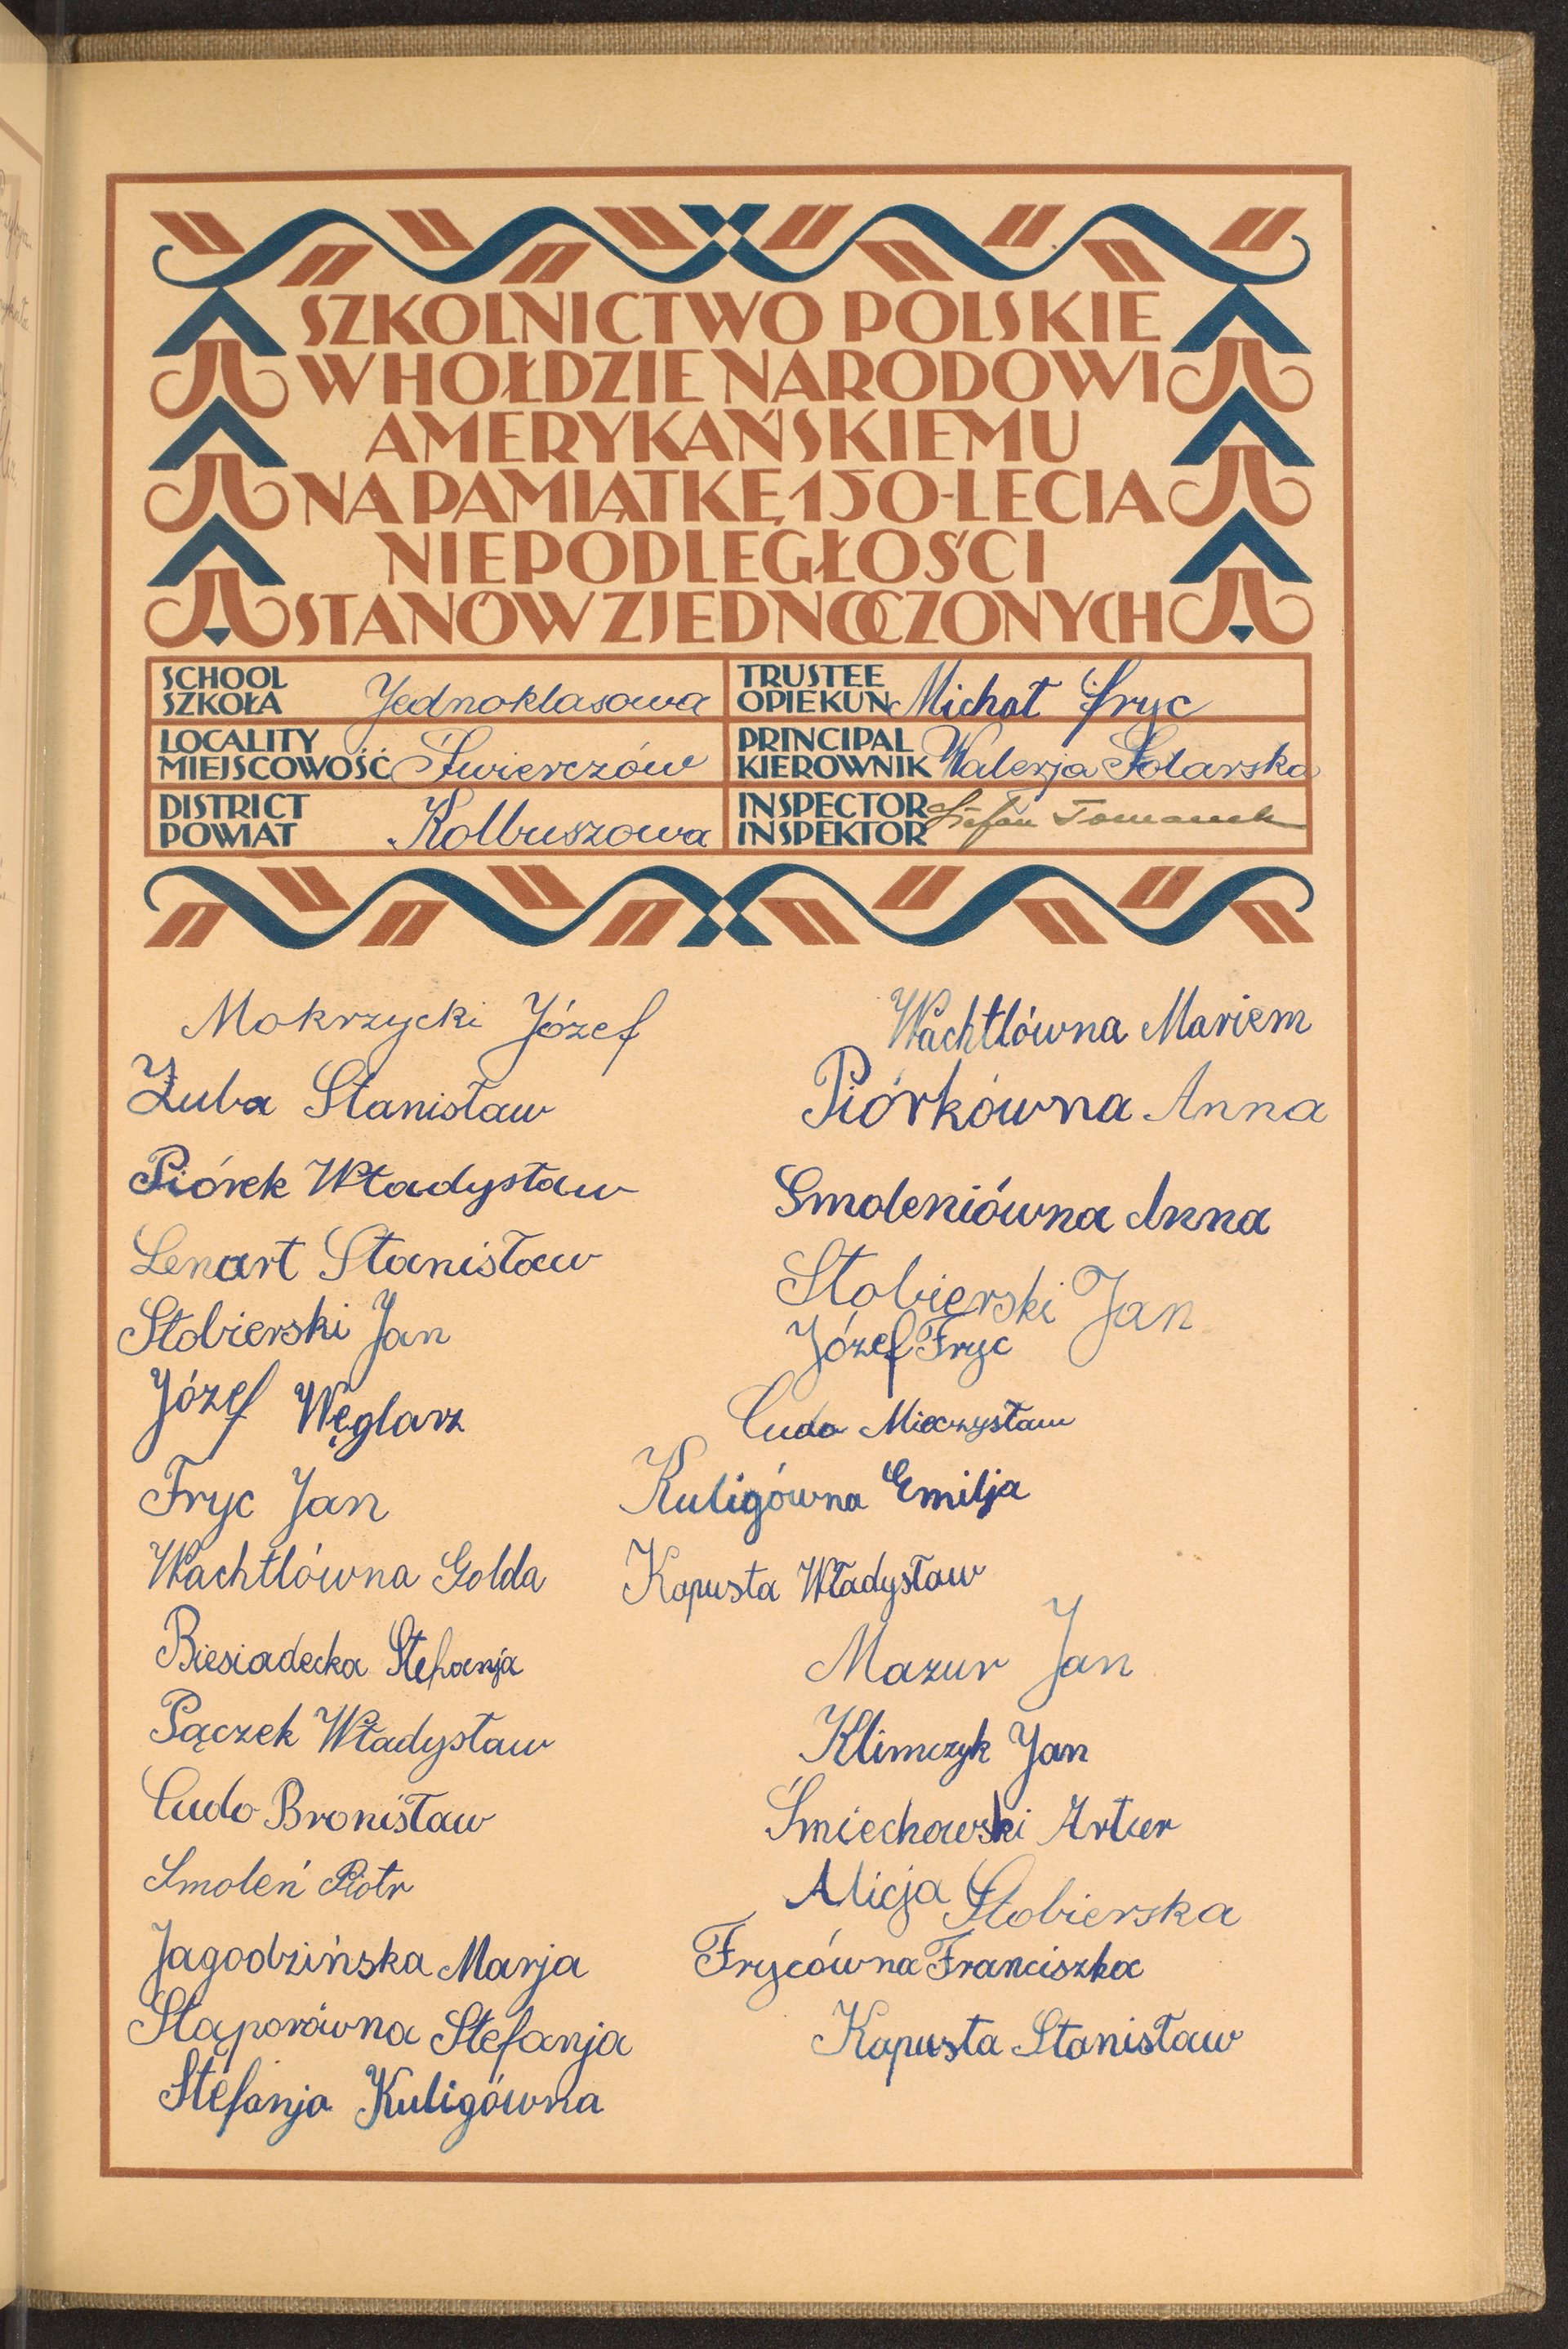 SZKOLNICTWO POLSKIE
W HOŁDZIE NARODOWI
AMERYKAŃSKIEMU
NA PAMIĄTKĘ 150-LECIA
NIEPODLEGŁOŚCI
STANÓW ZJEDNOCZONYCH
SCHOOL
SZKOŁA Jednoklasowa
TRUSTEE
OPIEKUN Michał Fryc
LOCALITY
MIEJSCOWOŚĆ Świerczów
PRINCIPAL
KIEROWNIK Walerja Solarska
DISTRICT
POWIAT Kolbuszowa
INSPECTOR
INSPEKTOR Stefan Tomanek
Mokrzycki Józef
Żuba Stanisław
Piórek Władysław
Lenart Stanisław
Stobierski Jan
Józef Węglarz
Fryc Jan
Wachtlówna Golda
Biesiadecka Stefanja
Pączek Władysław
Cudo Bronisław
Smoleń Piotr
Jagodzińska Marja
Stąporówna Stefanja
Stefanja Kuligówna
Wachtlówna Mariem
Piórkówna Anna
Smoleniówna Anna
Stobierski Jan
Józef Fryc
Cudo Mieczysław
Kuligówna Emilja
Kapusta Władysław
Mazur Jan
Klimczyk Jan
Śmiechowski Artur
Alicja Stobierska
Frycówna Franciszka
Kapusta Stanisław